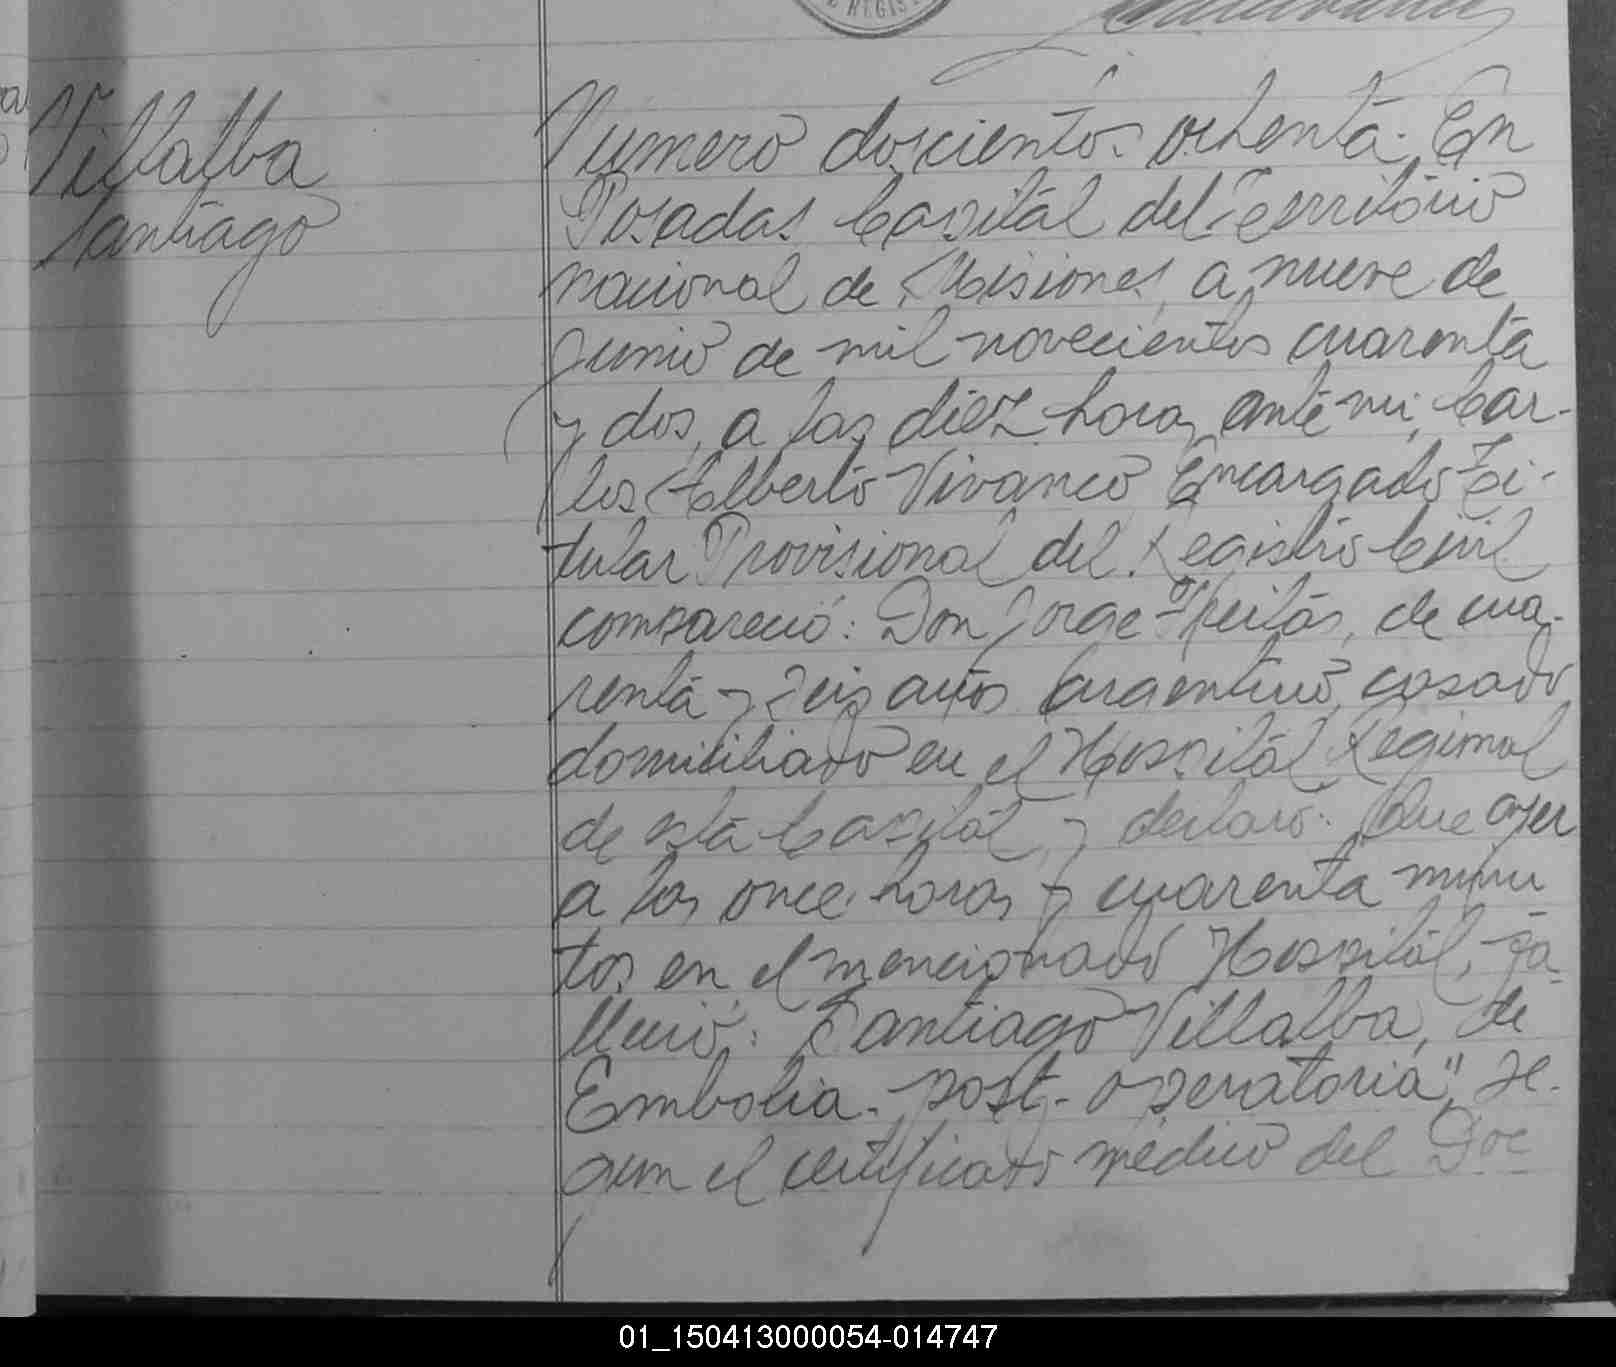 E REGIS
Villalba
Santiago
Numero doscientos ochenta. En
Posadas, Capital del Territorio
nacional de Misiones, a nueve de
junio de mil novecientos cuarenta
y dos, a las diez horas, ante mi, Car-
los Alberto Vivanco Encargado Ti-
tular Provisional del Registro Civil
compareció: Don Jorge de
cua-
renta y seis años, argentino, casado
domiciliado en el Hospital Regional
de esta Capital, y declaró: Que ayer
a las once horas y cuarenta minu
tos en el mencionado Hospital, fa-
lleció: Santiago Villalba, de
Embolia-post-operatoria", se-
gun el certificado médico del Doc
01_150413000054-014747